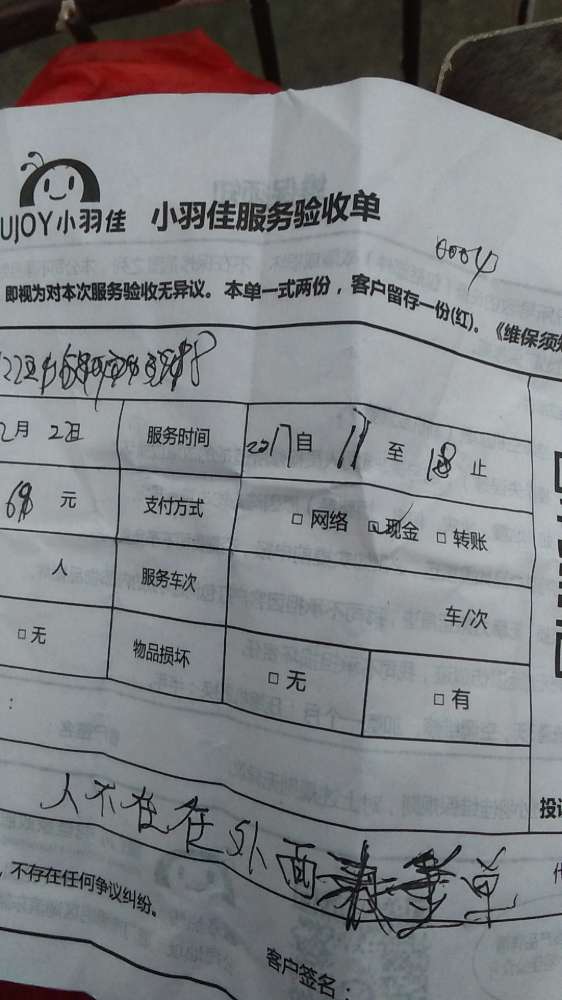 UJOY小羽佳 小羽佳服务验收单
0004
即视为对本次服务验收无异议。本单一式两份，客户留存一份(红)。《维保须知
2月 2日 服务时间 2017 自 11 至 止
元 支付方式 □网络 □现金 □转账
人 服务车次 车/次
□无 物品损坏 □无 □有
：
投诉
人不在在外面 单
代
，不存在任何争议纠纷。
客户签名：